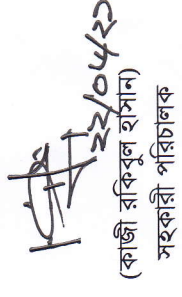 ২২/০৪/২১
(কাজী রকিবুল হাসান)
সহকারী পরিচালক